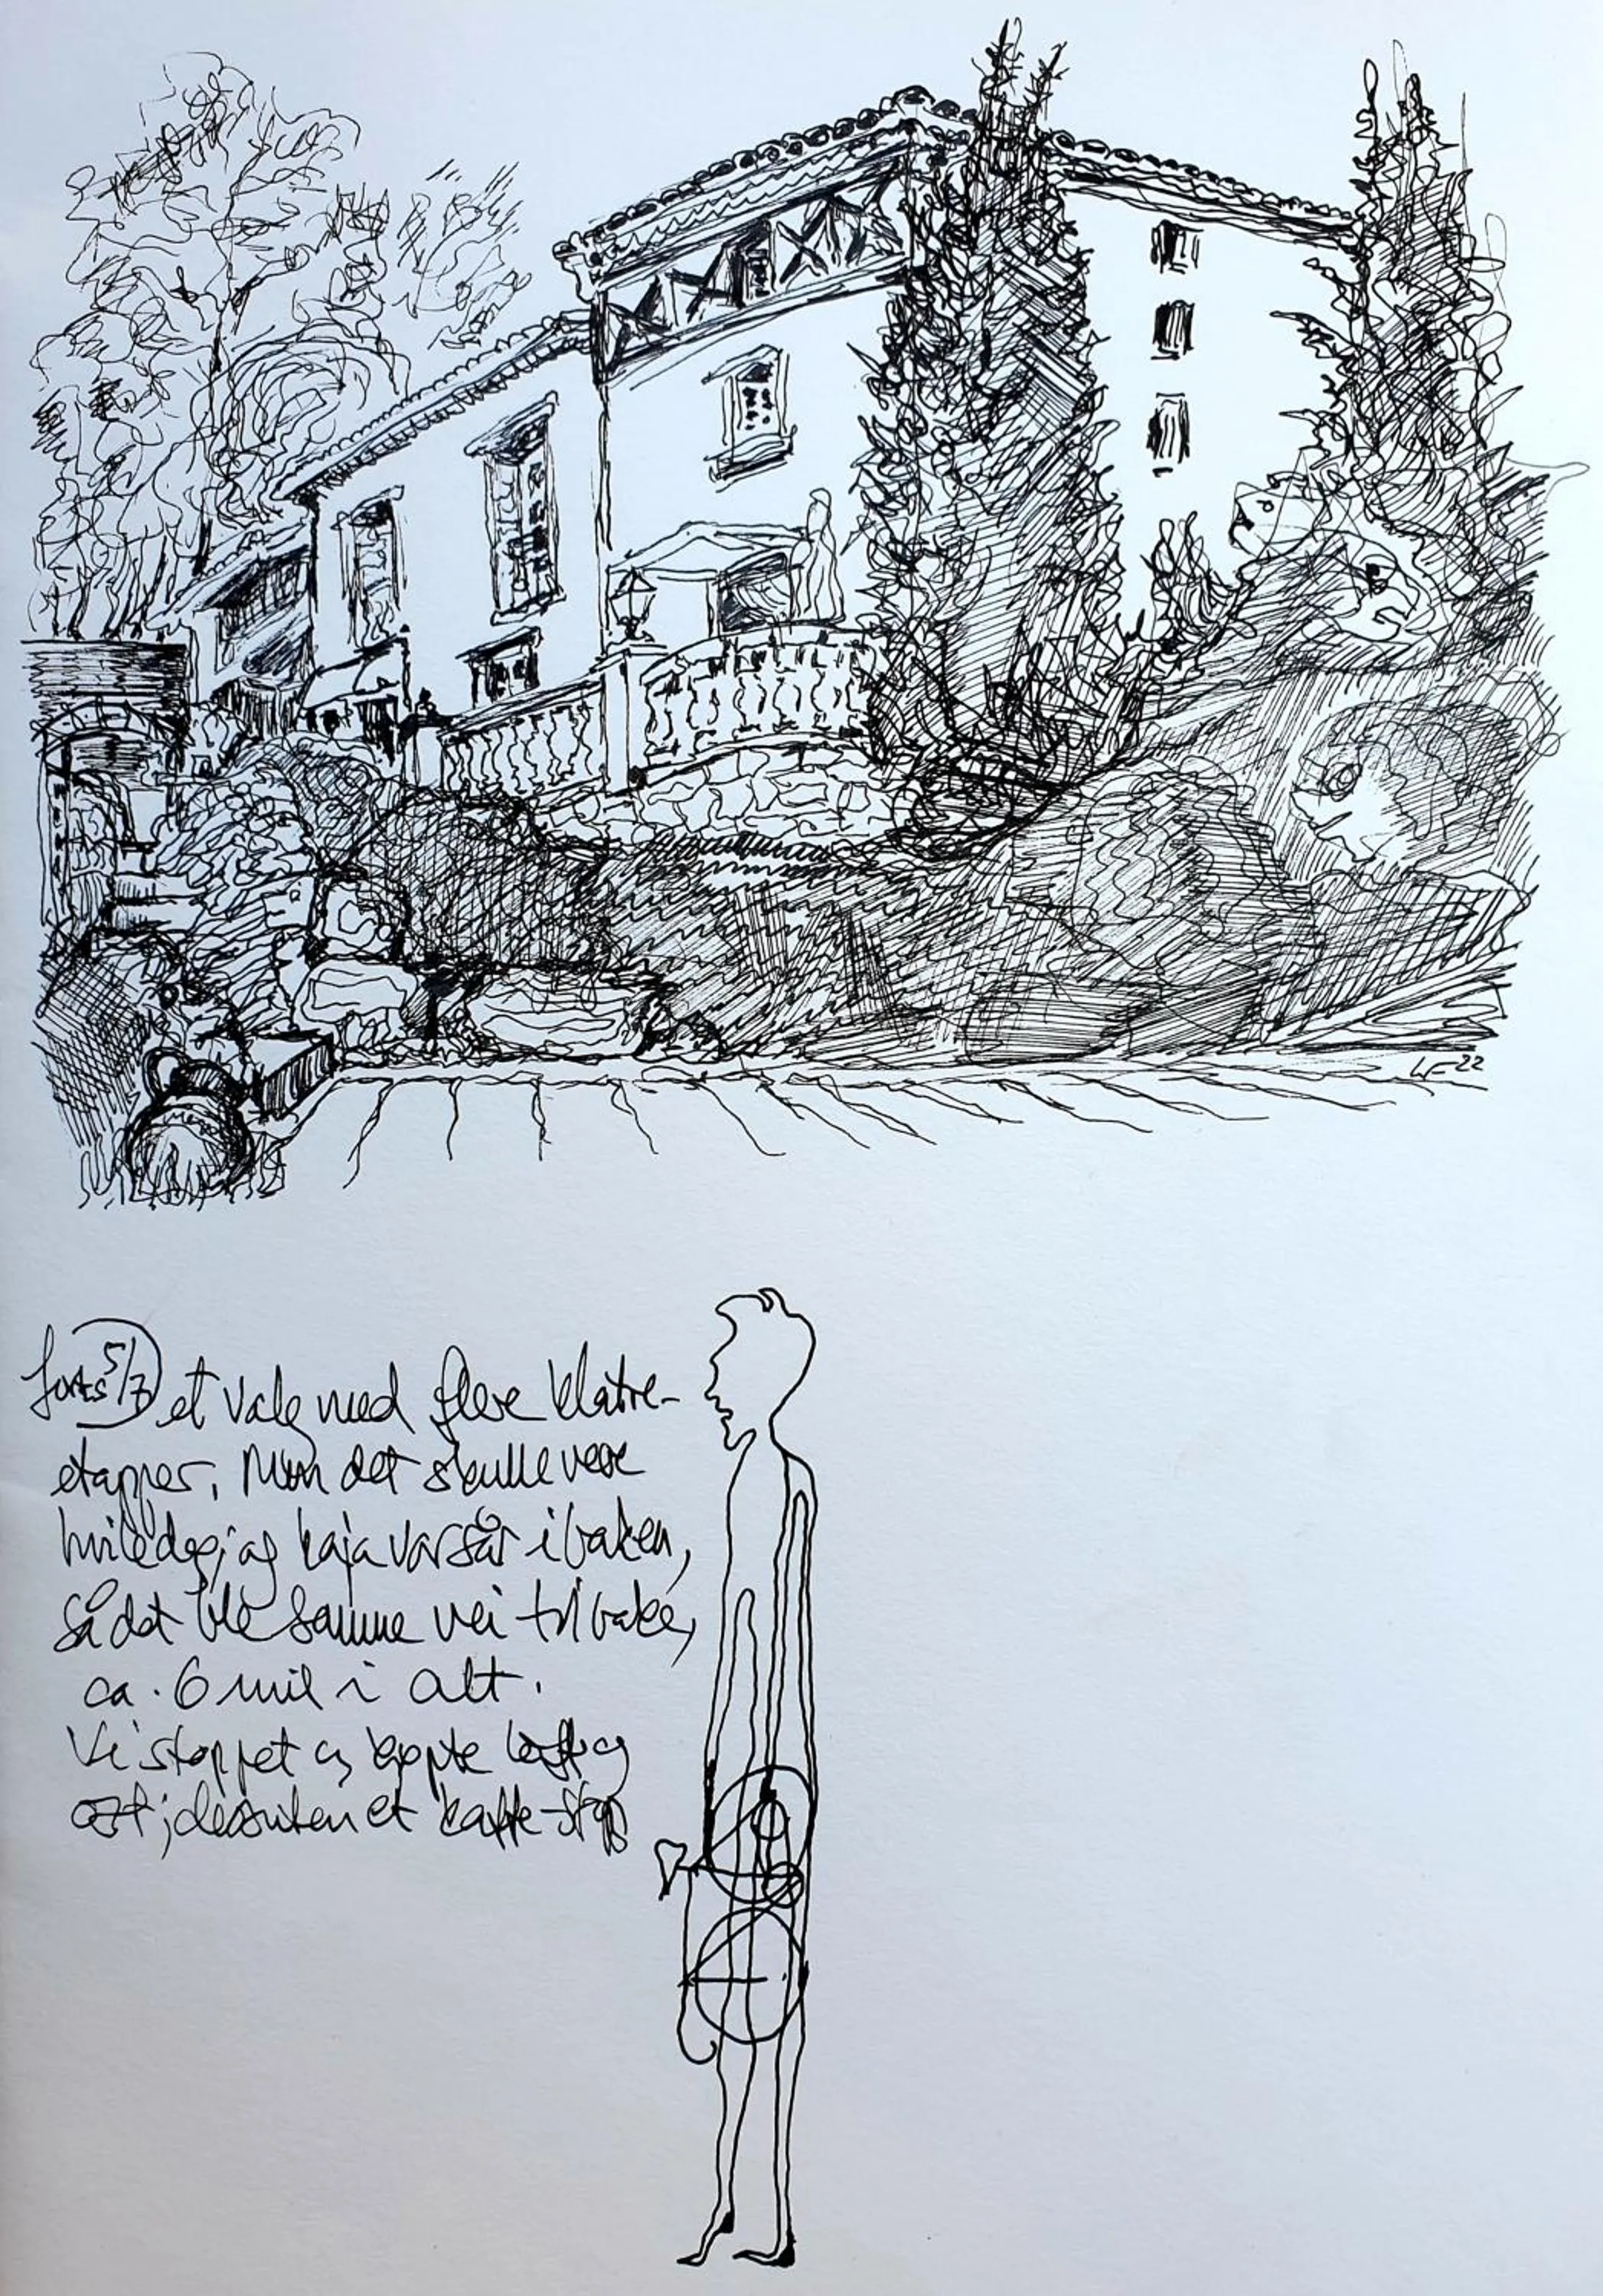 LF 22
forts 5/7 et valg med flere klatre-
etapper. Men det skulle være
hviledag, og Kaja var sår i baken,
så det ble samme vei tilbake,
ca. 6 mil i alt.
Vi stoppet og kjøpte loff og
ost; dessuten et kaffe-stopp